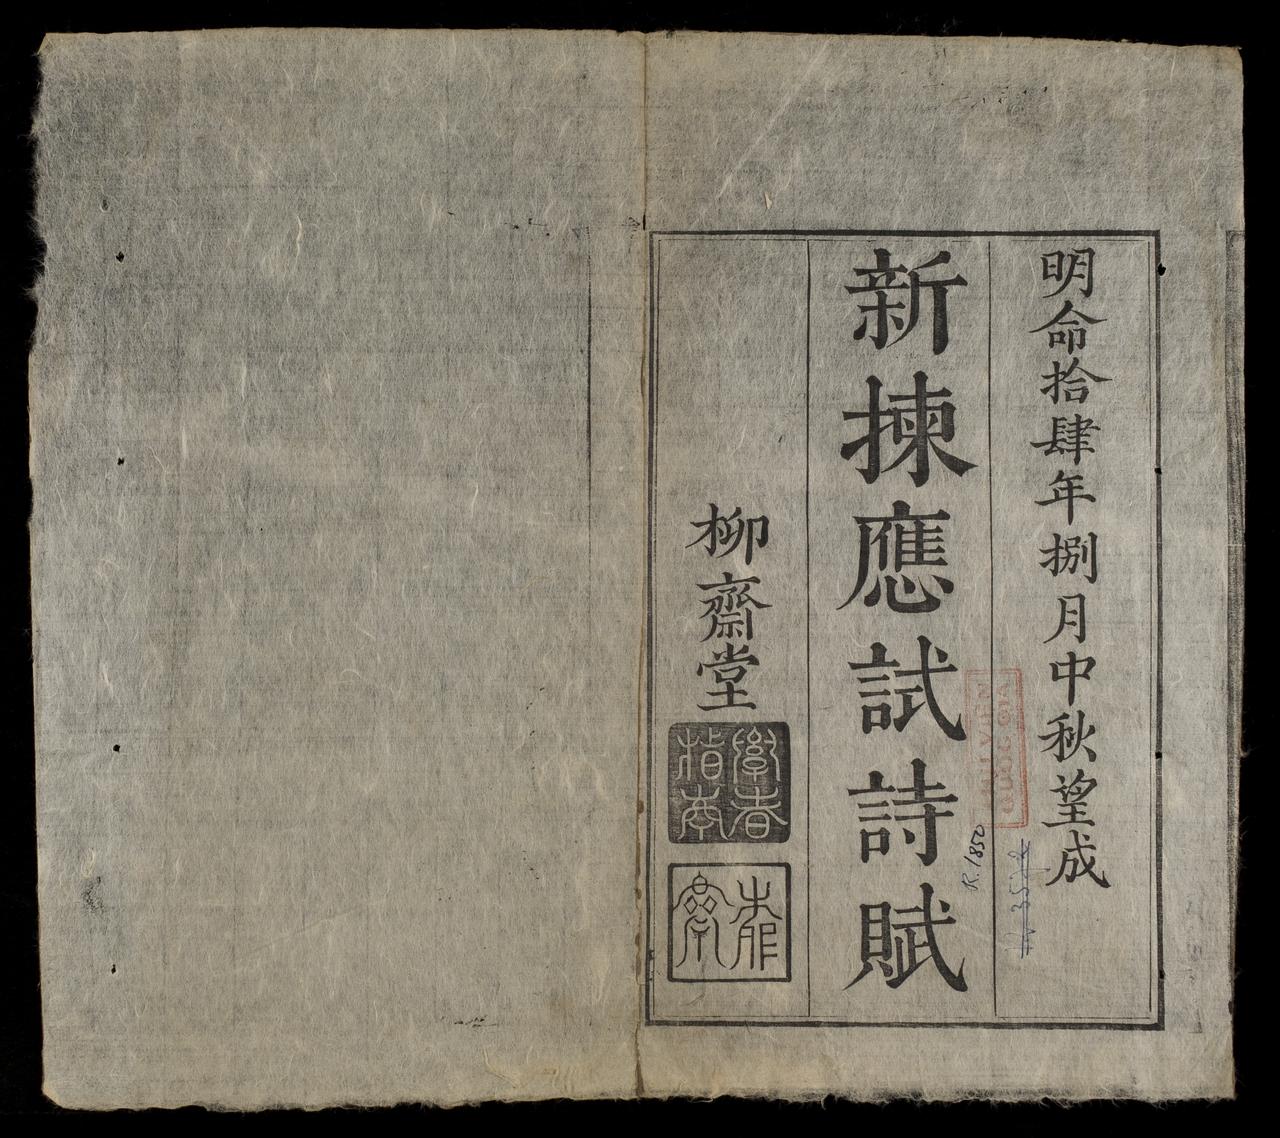 明命拾肆年捌月中秋望成
新揀應試詩賦
柳齋堂
學者
指南
柳
齋
R.1850